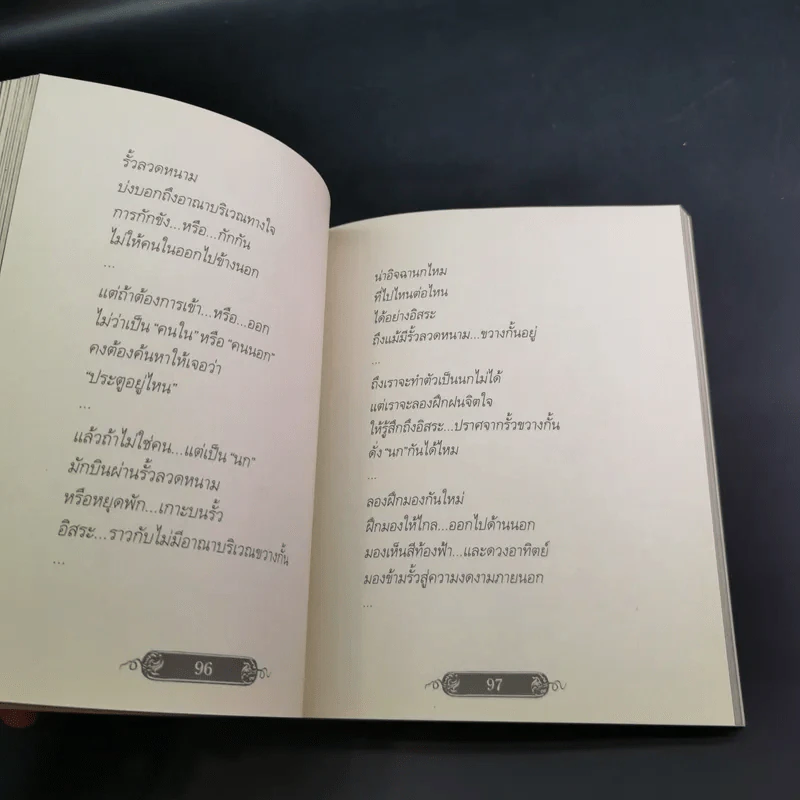 รั้วลวดหนาม
บ่งบอกถึงอาณาบริเวณทางใจ
การกักขัง...หรือ...กักกัน
ไม่ให้คนในออกไปข้างนอก
...
แต่ถ้าต้องการเข้า...หรือ...ออก
ไม่ว่าเป็น "คนใน" หรือ "คนนอก"
คงต้องค้นหาให้เจอว่า
"ประตูอยู่ไหน"
...
แล้วถ้าไม่ใช่คน...แต่เป็น "นก"
มักบินผ่านรั้วลวดหนาม
หรือหยุดพัก...เกาะบนรั้ว
อิสระ...ราวกับไม่มีอาณาบริเวณขวางกั้น
...
96
น่าอิจฉานกไหม
ที่ไปไหนต่อไหน
ได้อย่างอิสระ
ถึงแม้มีรั้วลวดหนาม...ขวางกั้นอยู่
...
ถึงเราจะทำตัวเป็นนกไม่ได้
แต่เราจะลองฝึกฝนจิตใจ
ให้รู้สึกถึงอิสระ...ปราศจากรั้วขวางกั้น
ดั่ง "นก"กันได้ไหม
...
ลองฝึกมองกันใหม่
ฝึกมองให้ไกล...ออกไปด้านนอก
มองเห็นสีท้องฟ้า...และดวงอาทิตย์
มองข้ามรั้วสู่ความงดงามภายนอก
...
97